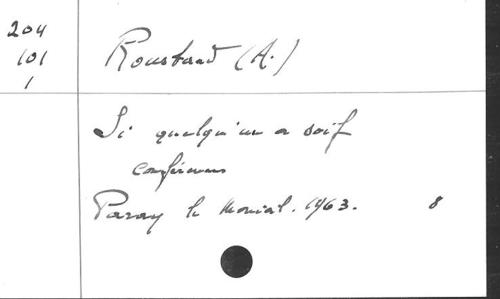 204
101
1
Roustand (A.)
Si quelqu'un a soif
conférences
Paray le Monial. 1963. 8